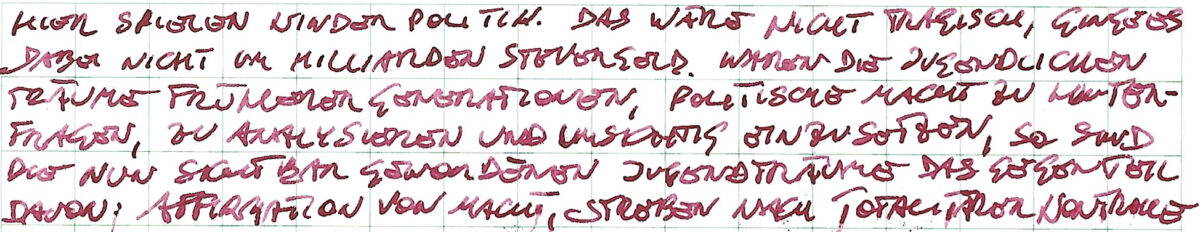 HIER SPIELEN KINDER POLITIK. DAS WÄRE NICHT TRAGISCH, GINGE ES
DABEI NICHT UM MILLIARDEN STEUERGELD. WAREN DIE JUGENDLICHEN
TRÄUME FRÜHERER GENERATIONEN, POLITISCHE MACHT ZU HINTER-
FRAGEN, ZU ANALYSIEREN UND UMSICHTIG EINZUSETZEN, SO SIND
DIE NUN SICHTBAR GEWORDENEN JUGENDTRÄUME DAS GEGENTEIL
DAVON: AFFIRMATION VON MACHT, STREBEN NACH TOTALITÄRER KONTROLLE